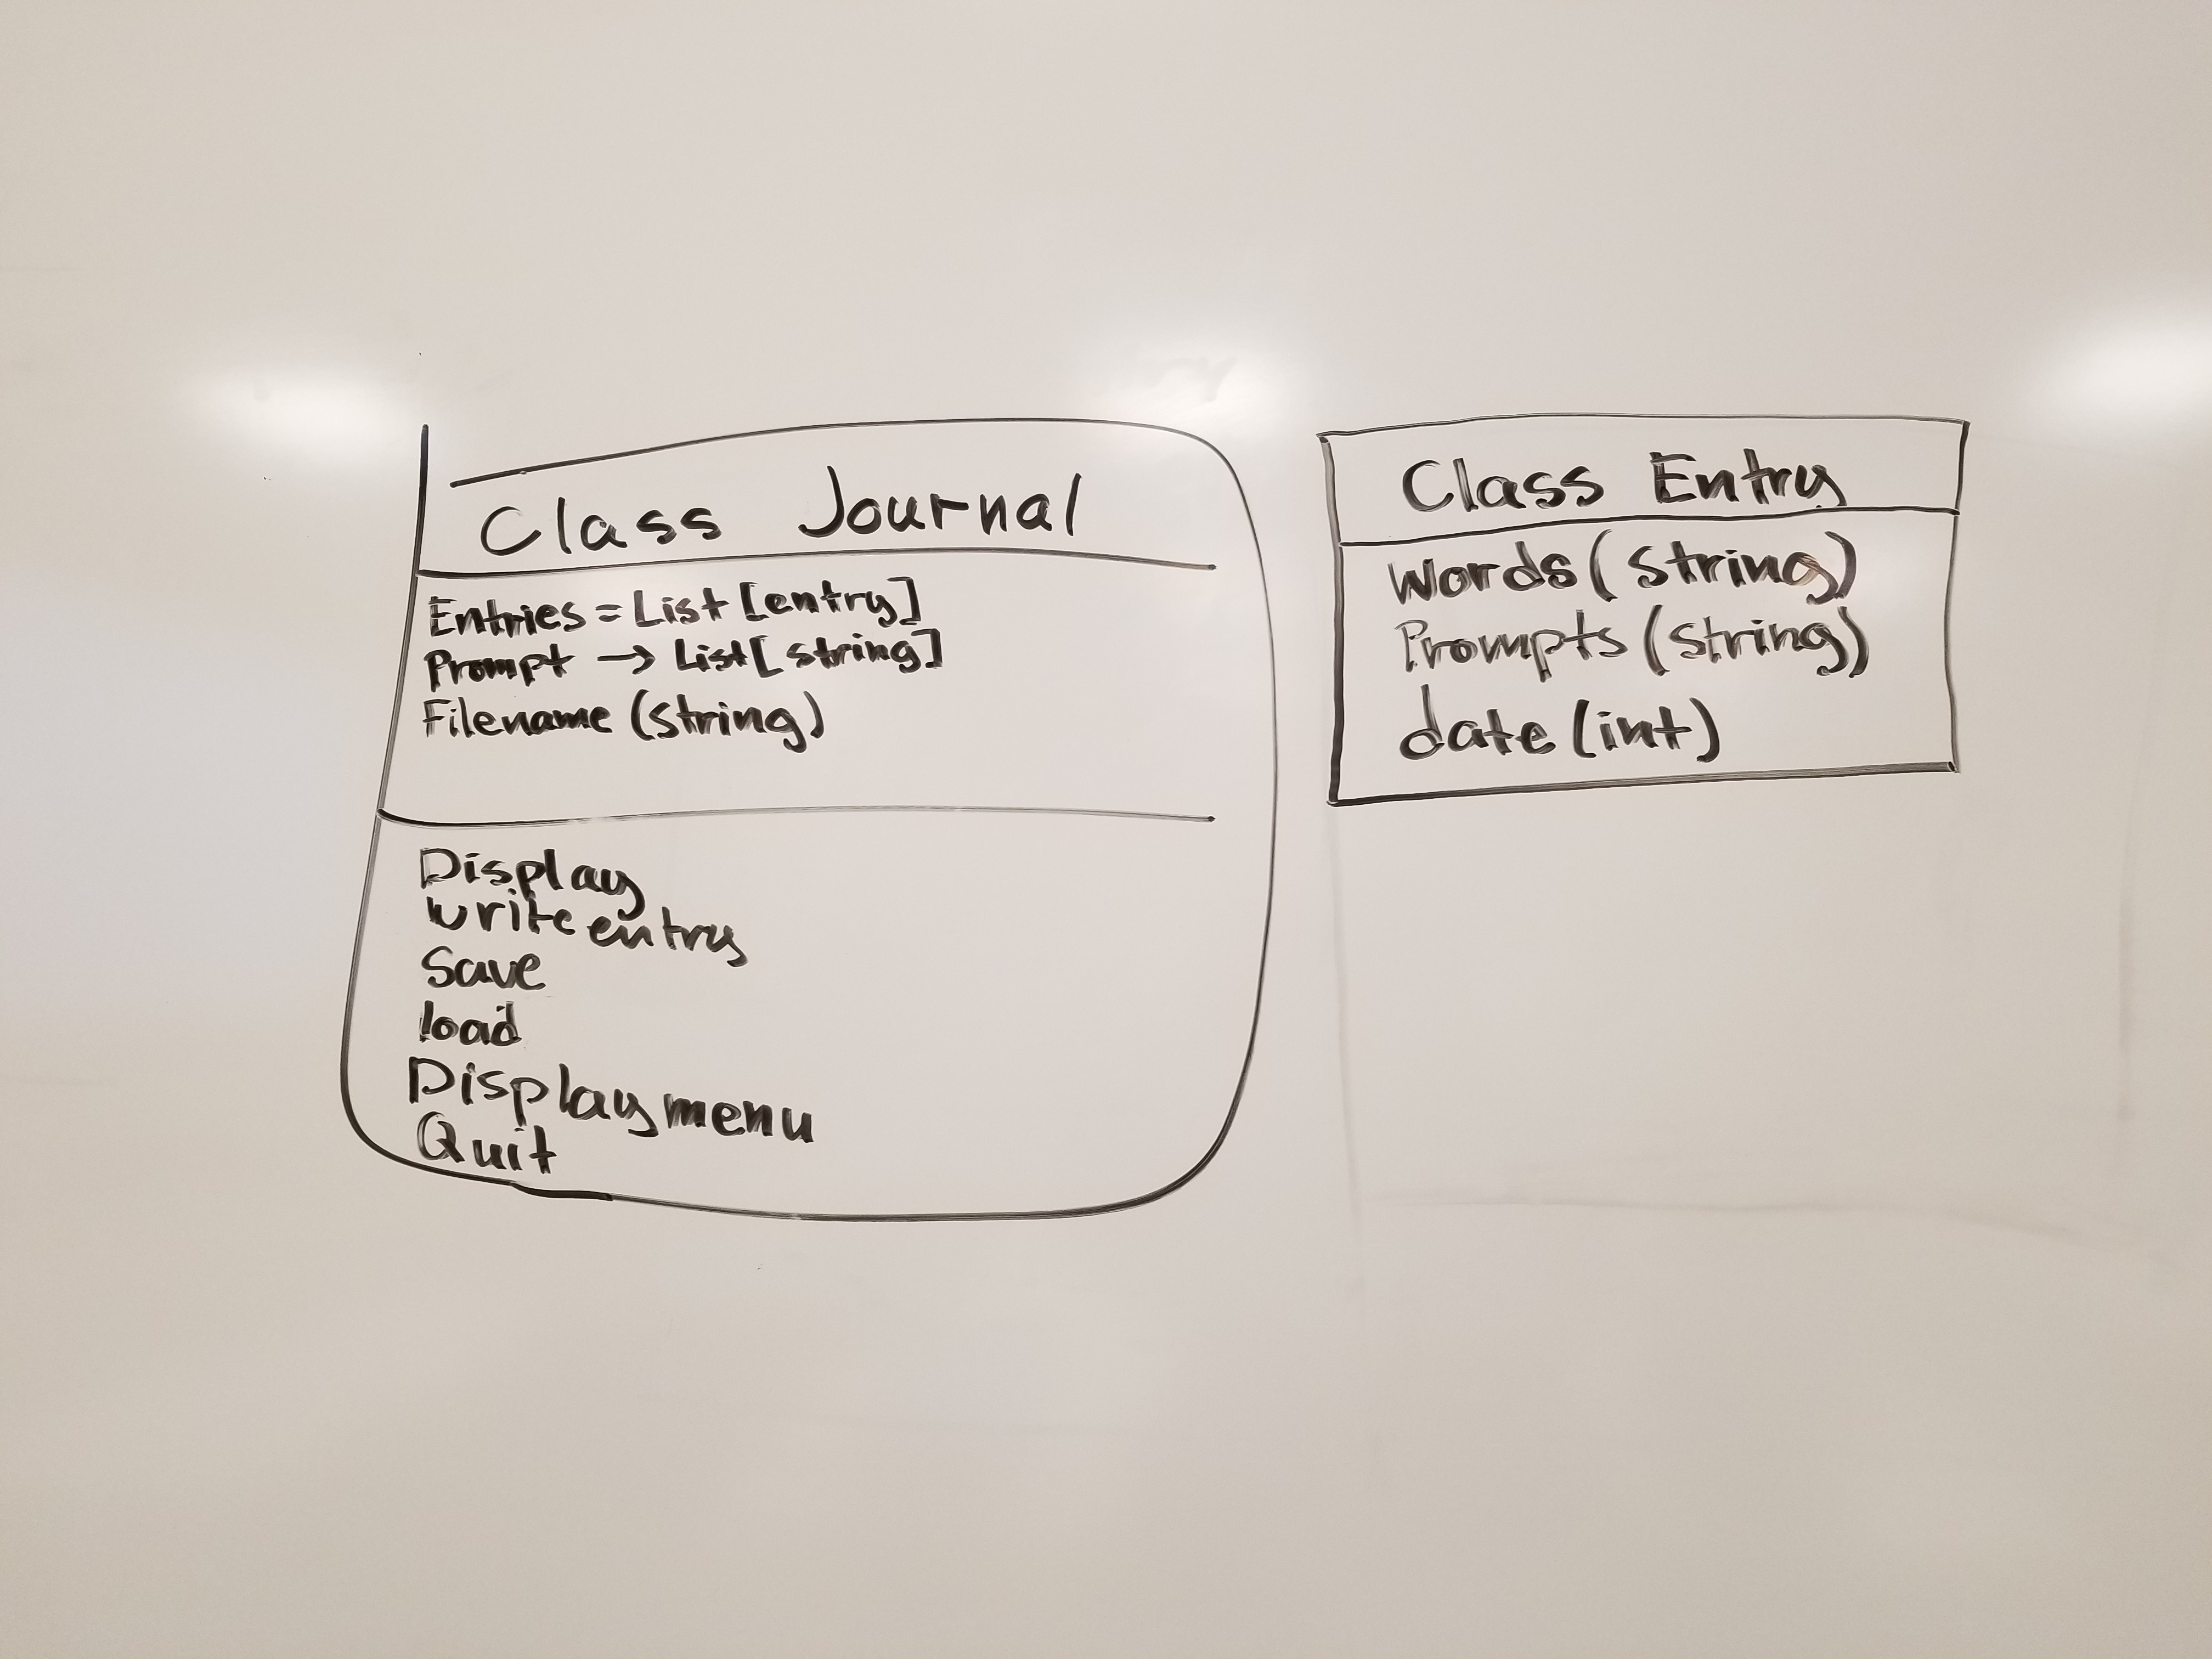 Class Journal
Entries = List [entry]
Prompt → List [string]
Filename (string)
Display
write entry
Save
load
Display menu
Quit
Class Entry
words (string)
Prompts (string)
date (int)